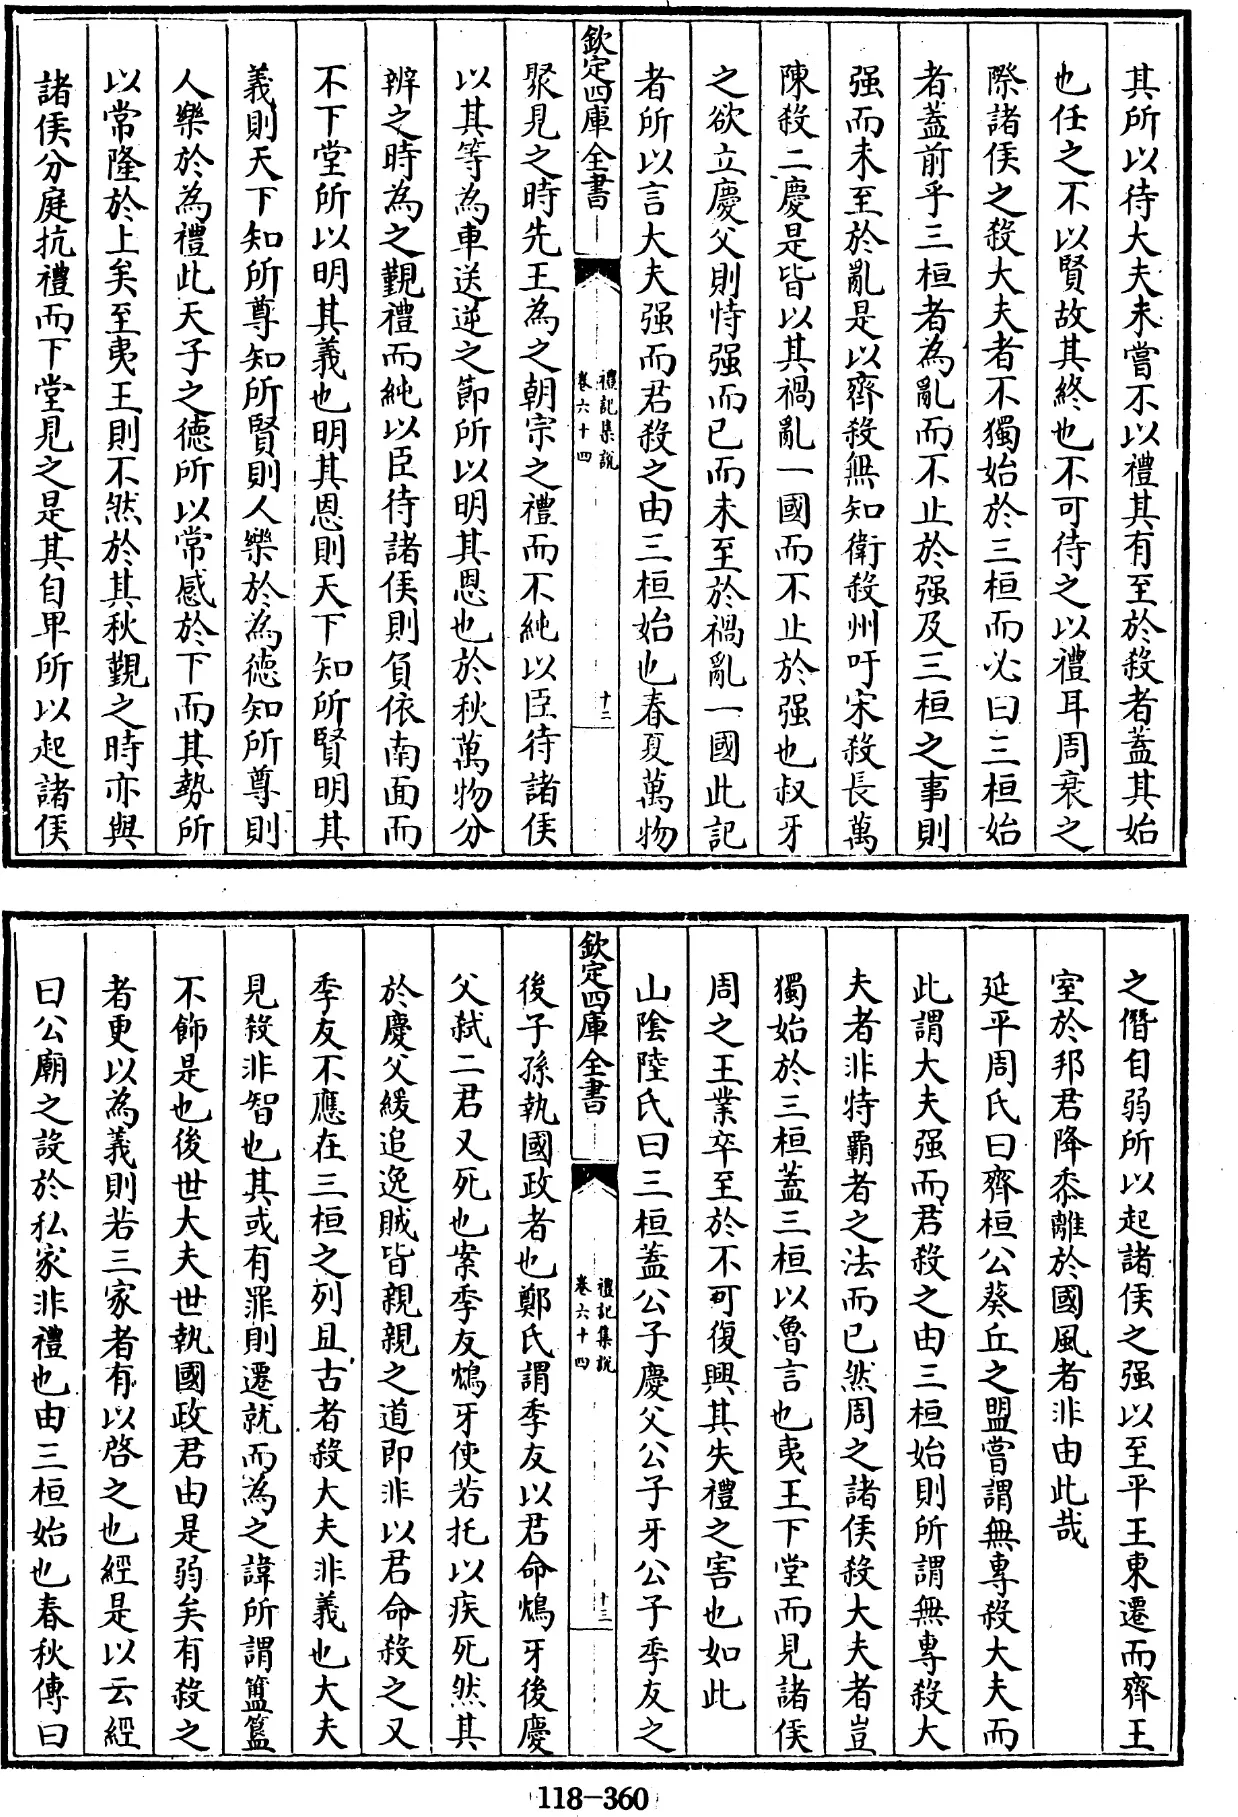 其所以待大夫未嘗不以禮其有至於殺者蓋其始
也任之不以賢故其終也不可待之以禮耳周衰之
際諸侯之殺大夫者不獨始於三桓而必曰三桓始
者蓋前乎三桓者為亂而不止於强及三桓之事則
强而未至於亂是以齊殺無知衛殺州吁宋殺長萬
陳殺二慶是皆以其禍亂一國而不止於强也叔牙
之欲立慶父則恃强而已而未至於禍亂一國此記
者所以言大夫强而君殺之由三桓始也春夏萬物
欽定四庫全書
禮記集說
卷六十四
十二
聚見之時先王為之朝宗之禮而不純以臣待諸侯
以其等為車送逆之節所以明其恩也於秋萬物分
辨之時為之覲禮而純以臣待諸侯則負依南面而
不下堂所以明其義也明其恩則天下知所賢明其
義則天下知所尊知所賢則人樂於為德知所尊則
人樂於為禮此天子之德所以常感於下而其勢所
以常隆於上矣至夷王則不然於其秋覲之時亦與
諸侯分庭抗禮而下堂見之是其自卑所以起諸侯
之僭自弱所以起諸侯之强以至平王東遷而齊王
室於邦君降黍離於國風者非由此哉
延平周氏曰齊桓公葵丘之盟嘗謂無專殺大夫而
此謂大夫强而君殺之由三桓始則所謂無專殺大
夫者非特霸者之法而已然周之諸侯殺大夫者豈
獨始於三桓蓋三桓以魯言也夷王下堂而見諸侯
周之王業卒至於不可復興其失禮之害也如此
山陰陸氏曰三桓蓋公子慶父公子牙公子季友之
欽定四庫全書
禮記集說
卷六十四
十三
後子孫執國政者也鄭氏謂季友以君命鴆牙後慶
父弑二君又死也案季友鴆牙使若托以疾死然其
於慶父緩追逸賊皆親親之道即非以君命殺之又
季友不應在三桓之列且古者殺大夫非義也大夫
見殺非智也其或有罪則遷就而為之諱所謂簠簋
不飾是也後世大夫世執國政君由是弱矣有殺之
者更以為義則若三家者有以啓之也經是以云經
曰公廟之設於私家非禮也由三桓始也春秋傳曰
118-360